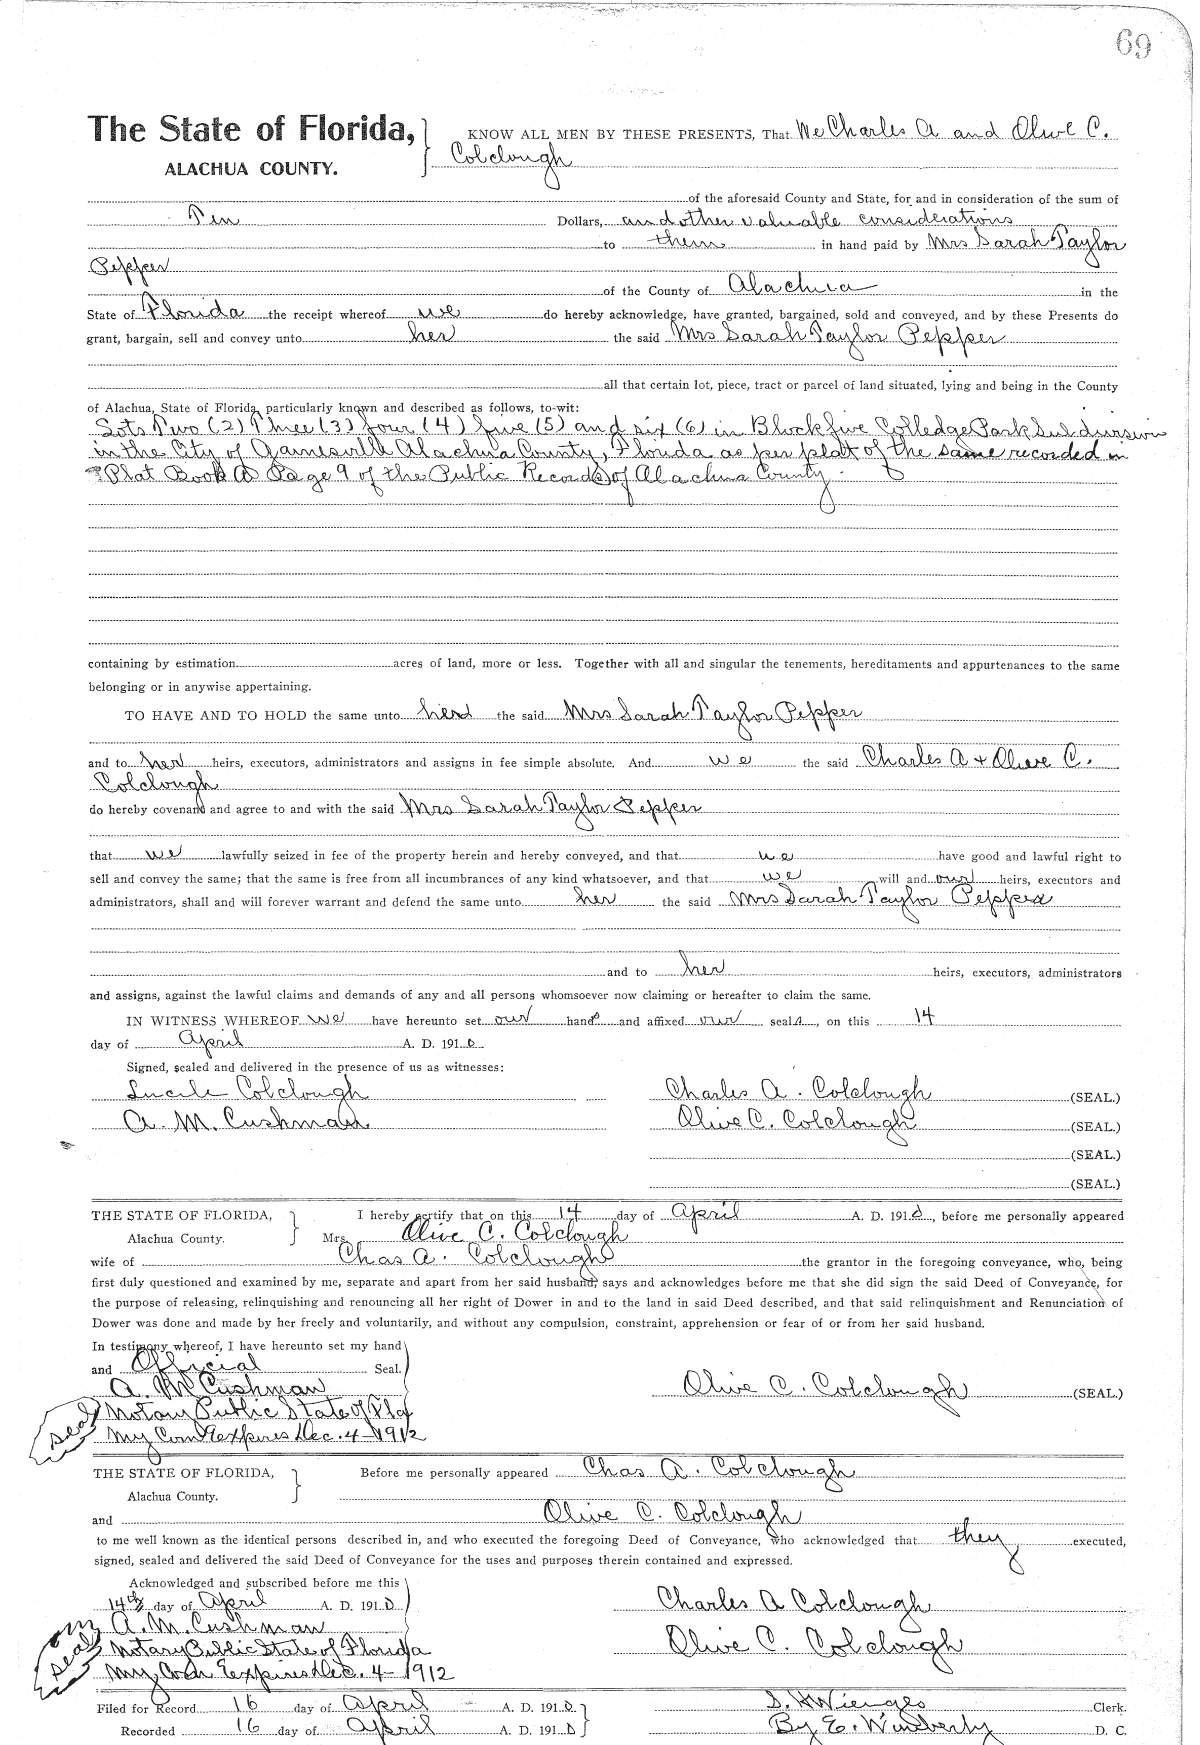 69
The State of Florida, } KNOW ALL MEN BY THESE PRESENTS, That We Charles A and Olive C.
ALACHUA COUNTY. Colclough
of the aforesaid County and State, for and in consideration of the sum of
Ten Dollars, and other valuable considerations
to them in hand paid by Mrs Sarah Taylor
Pepper
of the County of Alachua in the
State of Florida the receipt whereof we do hereby acknowledge, have granted, bargained, sold and conveyed, and by these Presents do
grant, bargain, sell and convey unto her the said Mrs Sarah Taylor Pepper
all that certain lot, piece, tract or parcel of land situated, lying and being in the County
of Alachua, State of Florida, particularly known and described as follows, to-wit:
Lots Two (2) Three (3) four (4) five (5) and six (6) in Block five Colledge Park Subdivision
in the City of Gainesville Alachua County, Florida as per plat of the same recorded in
Plat Book A Page 9 of the Public Records of Alachua County.
containing by estimation acres of land, more or less. Together with all and singular the tenements, hereditaments and appurtenances to the same
belonging or in anywise appertaining.
TO HAVE AND TO HOLD the same unto her the said Mrs Sarah Taylor Pepper
and to her heirs, executors, administrators and assigns in fee simple absolute. And we the said Charles A + Olive C.
Colclough
do hereby covenant and agree to and with the said Mrs Sarah Taylor Pepper
that we lawfully seized in fee of the property herein and hereby conveyed, and that we have good and lawful right to
sell and convey the same; that the same is free from all incumbrances of any kind whatsoever, and that we will and our heirs, executors and
administrators, shall and will forever warrant and defend the same unto her the said Mrs Sarah Taylor Pepper
and to her heirs, executors, administrators
and assigns, against the lawful claims and demands of any and all persons whomsoever now claiming or hereafter to claim the same.
IN WITNESS WHEREOF we have hereunto set our hands and affixed our seals, on this 14
day of April A. D. 1910
Signed, sealed and delivered in the presence of us as witnesses:
Lucile Colclough Charles A. Colclough (SEAL.)
A. M. Cushman Olive C. Colclough (SEAL.)
(SEAL.)
(SEAL.)
THE STATE OF FLORIDA, } I hereby certify that on this 14 day of April A. D. 1910, before me personally appeared
Alachua County. Mrs. Olive C. Colclough
wife of Chas A. Colclough the grantor in the foregoing conveyance, who, being
first duly questioned and examined by me, separate and apart from her said husband, says and acknowledges before me that she did sign the said Deed of Conveyance, for
the purpose of releasing, relinquishing and renouncing all her right of Dower in and to the land in said Deed described, and that said relinquishment and Renunciation of
Dower was done and made by her freely and voluntarily, and without any compulsion, constraint, apprehension or fear of or from her said husband.
In testimony whereof, I have hereunto set my hand
and Official Seal.
A. M Cushman Olive C. Colclough (SEAL.)
seal Notary Public State of Fla
My Com Expires Dec. 4-1912
THE STATE OF FLORIDA, } Before me personally appeared Chas A. Colclough
Alachua County.
and Olive C. Colclough
to me well known as the identical persons described in, and who executed the foregoing Deed of Conveyance, who acknowledged that they executed,
signed, sealed and delivered the said Deed of Conveyance for the uses and purposes therein contained and expressed.
Acknowledged and subscribed before me this
14th day of April A. D. 1910 Charles A Colclough
A. M. Cushman
seal Notary Public State of Florida Olive C. Colclough
My Com Expires Dec. 4-1912
Filed for Record 16 day of April A. D. 1910 S. H Wienges Clerk.
Recorded 16 day of April A. D. 1910 By E. Wimberly D. C.